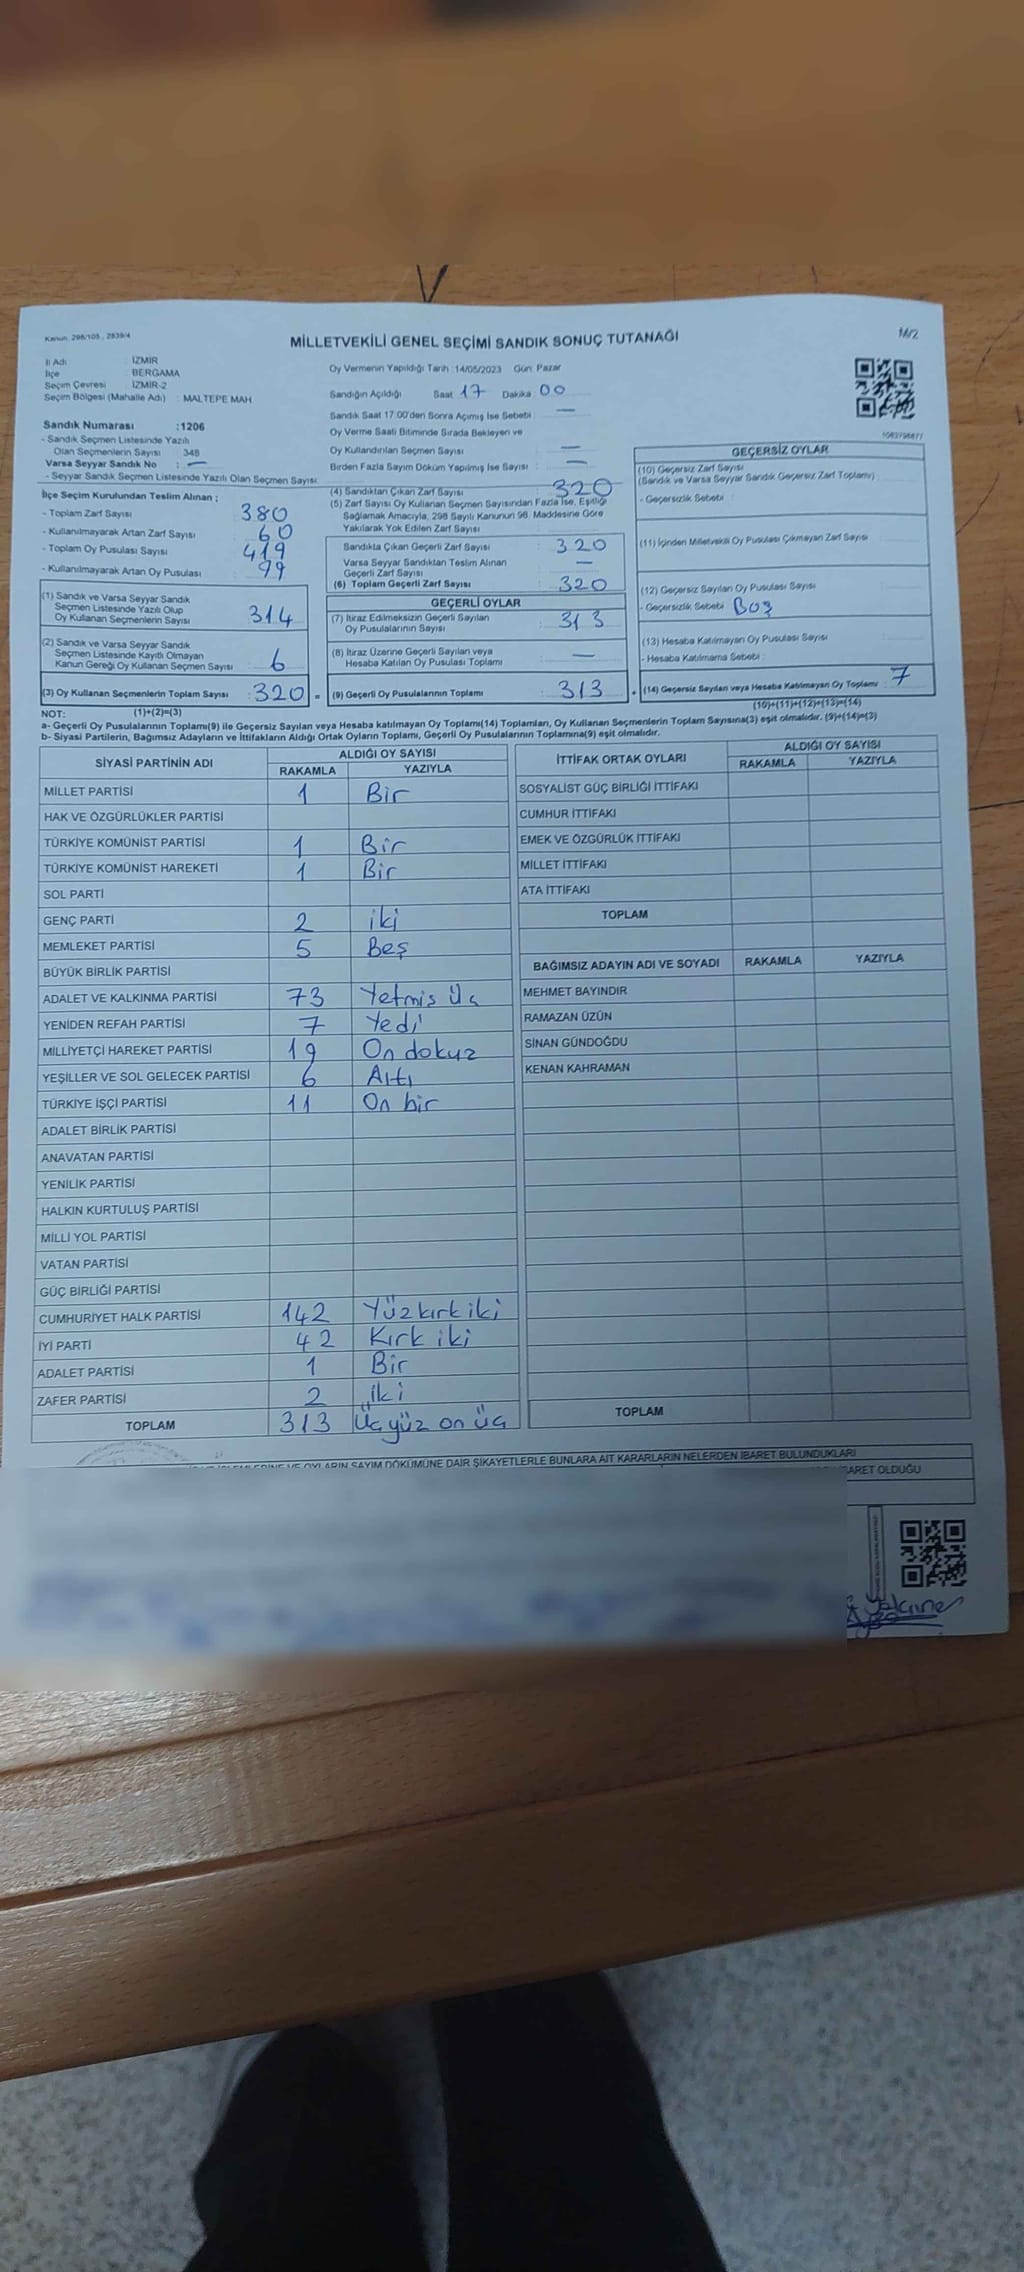 Kanun: 298/105, 2839/4
MİLLETVEKİLİ GENEL SEÇİMİ SANDIK SONUÇ TUTANAĞI
M/2
İl Adı : İZMİR
İlçe : BERGAMA
Seçim Çevresi : İZMİR-2
Seçim Bölgesi (Mahalle Adı) : MALTEPE MAH
Sandık Numarası :1206
- Sandık Seçmen Listesinde Yazılı
Olan Seçmenlerin Sayısı : 348
Varsa Seyyar Sandık No : —
- Seyyar Sandık Seçmen Listesinde Yazılı Olan Seçmen Sayısı:
Oy Vermenin Yapıldığı Tarih :14/05/2023 Gün: Pazar
Sandığın Açıldığı Saat 17 Dakika 00
Sandık Saat 17:00'den Sonra Açımış İse Sebebi : —
Oy Verme Saati Bitiminde Sırada Bekleyen ve
Oy Kullandırılan Seçmen Sayısı : —
Birden Fazla Sayım Döküm Yapılmış İse Sayısı : —
İlçe Seçim Kurulundan Teslim Alınan ;
- Toplam Zarf Sayısı : 380
- Kullanılmayarak Artan Zarf Sayısı : 60
- Toplam Oy Pusulası Sayısı : 419
- Kullanılmayarak Artan Oy Pusulası : 99
(1) Sandık ve Varsa Seyyar Sandık
Seçmen Listesinde Yazılı Olup
Oy Kullanan Seçmenlerin Sayısı : 314
(2) Sandık ve Varsa Seyyar Sandık
Seçmen Listesinde Kayıtlı Olmayan
Kanun Gereği Oy Kullanan Seçmen Sayısı : 6
(3) Oy Kullanan Seçmenlerin Toplam Sayısı : 320 =
(1)+(2)=(3)
(4) Sandıktan Çıkan Zarf Sayısı : 320
(5) Zarf Sayısı Oy Kullanan Seçmen Sayısından Fazla İse, Eşitliği
Sağlamak Amacıyla, 298 Sayılı Kanunun 98. Maddesine Göre
Yakılarak Yok Edilen Zarf Sayısı
Sandıkta Çıkan Geçerli Zarf Sayısı : 320
Varsa Seyyar Sandıktan Teslim Alınan
Geçerli Zarf Sayısı : —
(6) Toplam Geçerli Zarf Sayısı : 320
GEÇERLİ OYLAR
(7) İtiraz Edilmeksizin Geçerli Sayılan
Oy Pusulalarının Sayısı : 313
(8) İtiraz Üzerine Geçerli Sayılan veya
Hesaba Katılan Oy Pusulası Toplamı : —
(9) Geçerli Oy Pusulalarının Toplamı : 313 +
GEÇERSİZ OYLAR
(10) Geçersiz Zarf Sayısı
(Sandık ve Varsa Seyyar Sandık Geçersiz Zarf Toplamı) :
- Geçersizlik Sebebi :
(11) İçinden Milletvekili Oy Pusulası Çıkmayan Zarf Sayısı
(12) Geçersiz Sayılan Oy Pusulası Sayısı :
- Geçersizlik Sebebi : Boş
(13) Hesaba Katılmayan Oy Pusulası Sayısı
- Hesaba Katılmama Sebebi :
(14) Geçersiz Sayılan veya Hesaba Katılmayan Oy Toplamı : 7
(10)+(11)+(12)+(13)=(14)
NOT:
a- Geçerli Oy Pusulalarının Toplamı(9) ile Geçersiz Sayılan veya Hesaba katılmayan Oy Toplamı(14) Toplamları, Oy Kullanan Seçmenlerin Toplam Sayısına(3) eşit olmalıdır. (9)+(14)=(3)
b- Siyasi Partilerin, Bağımsız Adayların ve İttifakların Aldığı Ortak Oyların Toplamı, Geçerli Oy Pusulalarının Toplamına(9) eşit olmalıdır.
SİYASİ PARTİNİN ADI ALDIĞI OY SAYISI
RAKAMLA YAZIYLA
MİLLET PARTİSİ 1 Bir
HAK VE ÖZGÜRLÜKLER PARTİSİ
TÜRKİYE KOMÜNİST PARTİSİ 1 Bir
TÜRKİYE KOMÜNİST HAREKETİ 1 Bir
SOL PARTİ
GENÇ PARTİ 2 iki
MEMLEKET PARTİSİ 5 Beş
BÜYÜK BİRLİK PARTİSİ
ADALET VE KALKINMA PARTİSİ 73 Yetmis Üç
YENİDEN REFAH PARTİSİ 7 Yedi
MİLLİYETÇİ HAREKET PARTİSİ 19 On dokuz
YEŞİLLER VE SOL GELECEK PARTİSİ 6 Altı
TÜRKİYE İŞÇİ PARTİSİ 11 On bir
ADALET BİRLİK PARTİSİ
ANAVATAN PARTİSİ
YENİLİK PARTİSİ
HALKIN KURTULUŞ PARTİSİ
MİLLİ YOL PARTİSİ
VATAN PARTİSİ
GÜÇ BİRLİĞİ PARTİSİ
CUMHURİYET HALK PARTİSİ 142 Yüz kırk iki
İYİ PARTİ 42 Kırk iki
ADALET PARTİSİ 1 Bir
ZAFER PARTİSİ 2 iki
TOPLAM 313 Üçyüz on üç
İTTİFAK ORTAK OYLARI ALDIĞI OY SAYISI
RAKAMLA YAZIYLA
SOSYALİST GÜÇ BİRLİĞİ İTTİFAKI
CUMHUR İTTİFAKI
EMEK VE ÖZGÜRLÜK İTTİFAKI
MİLLET İTTİFAKI
ATA İTTİFAKI
TOPLAM
BAĞIMSIZ ADAYIN ADI VE SOYADI RAKAMLA YAZIYLA
MEHMET BAYINDIR
RAMAZAN ÜZÜN
SİNAN GÜNDOĞDU
KENAN KAHRAMAN
TOPLAM
VE OYLARIN SAYIM DÖKÜMÜNE DAİR ŞİKAYETLERLE BUNLARA AİT KARARLARIN NELERDEN İBARET BULUNDUKLARI
OLDUĞU